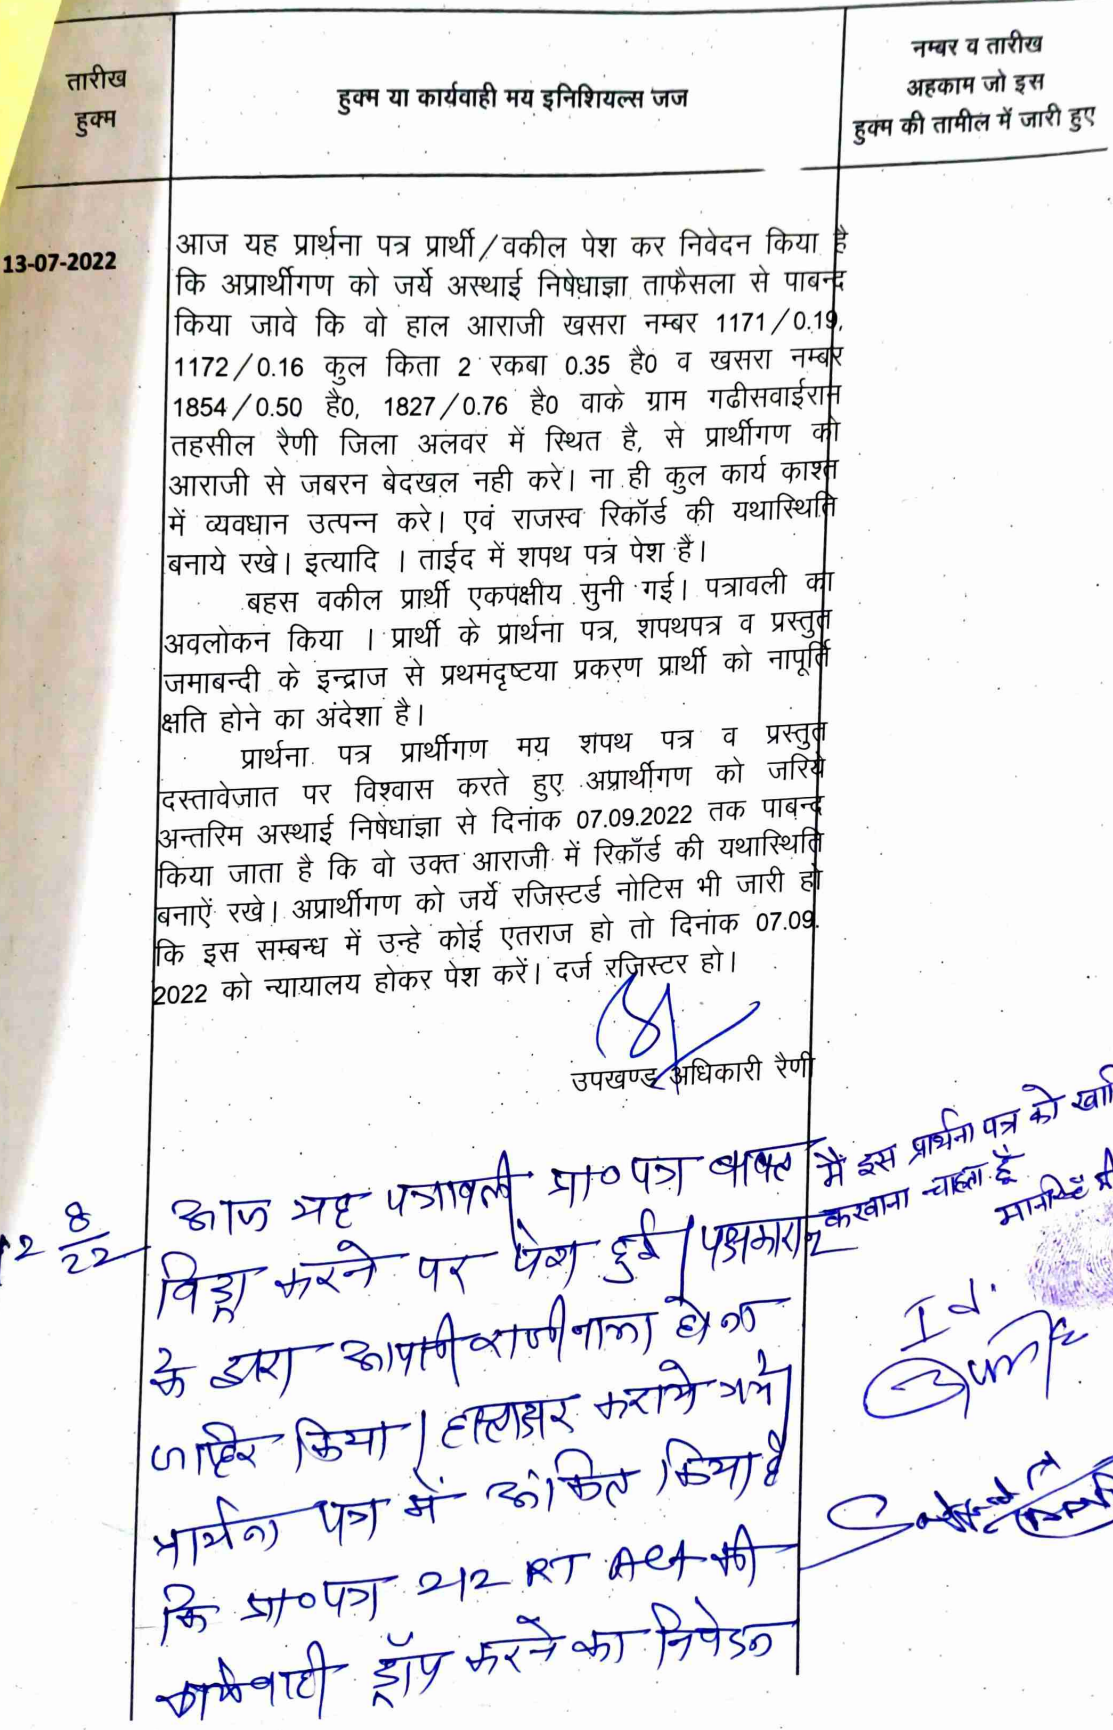 तारीख
हुक्म
हुक्म या कार्यवाही मय इनिशियल्स जज
नम्बर व तारीख
अहकाम जो इस
हुक्म की तामील में जारी हुए
13-07-2022
आज यह प्रार्थना पत्र प्रार्थी/वकील पेश कर निवेदन किया है
कि अप्रार्थीगण को जर्ये अस्थाई निषेधाज्ञा ताफैसला से पाबन्द
किया जावे कि वो हाल आराजी खसरा नम्बर 1171/0.19,
1172/0.16 कुल किता 2 रकबा 0.35 है0 व खसरा नम्बर
1854/0.50 है0, 1827/0.76 है0 वाके ग्राम गढीसवाईराम
तहसील रैणी जिला अलवर में स्थित है, से प्रार्थीगण को
आराजी से जबरन बेदखल नही करे। ना ही कुल कार्य काश्त
में व्यवधान उत्पन्न करे। एवं राजस्व रिकॉर्ड की यथास्थिति
बनाये रखे। इत्यादि । ताईद में शपथ पत्र पेश है।
बहस वकील प्रार्थी एकपक्षीय सुनी गई। पत्रावली का
अवलोकन किया । प्रार्थी के प्रार्थना पत्र, शपथपत्र व प्रस्तुत
जमाबन्दी के इन्द्राज से प्रथमदृष्टया प्रकरण प्रार्थी को नापूर्ति
क्षति होने का अंदेशा है।
प्रार्थना पत्र प्रार्थीगण मय शपथ पत्र व प्रस्तुत
दस्तावेजात पर विश्वास करते हुए अप्रार्थीगण को जरिये
अन्तरिम अस्थाई निषेधाज्ञा से दिनांक 07.09.2022 तक पाबन्द
किया जाता है कि वो उक्त आराजी में रिकॉर्ड की यथास्थिति
बनाऐं रखे। अप्रार्थीगण को जर्ये रजिस्टर्ड नोटिस भी जारी हो
कि इस सम्बन्ध में उन्हे कोई एतराज हो तो दिनांक 07.09.
2022 को न्यायालय होकर पेश करें। दर्ज रजिस्टर हो।
उपखण्ड अधिकारी रैणी
8
22
आज यह पत्रावली प्रा०पत्र बाबत
विड्रा करने पर पेश हुई। पक्षकारान
के द्वारा आपसी राजीनामा होना
जाहिर किया। हस्ताक्षर कराये गये।
प्रार्थना पत्र में अंकित किया है
कि प्रा०पत्र 212 RT Act की
कार्यवाही ड्रॉप करने का निवेदन
मैं इस प्रार्थना पत्र को
करवाना चाहता हूँ
Id.